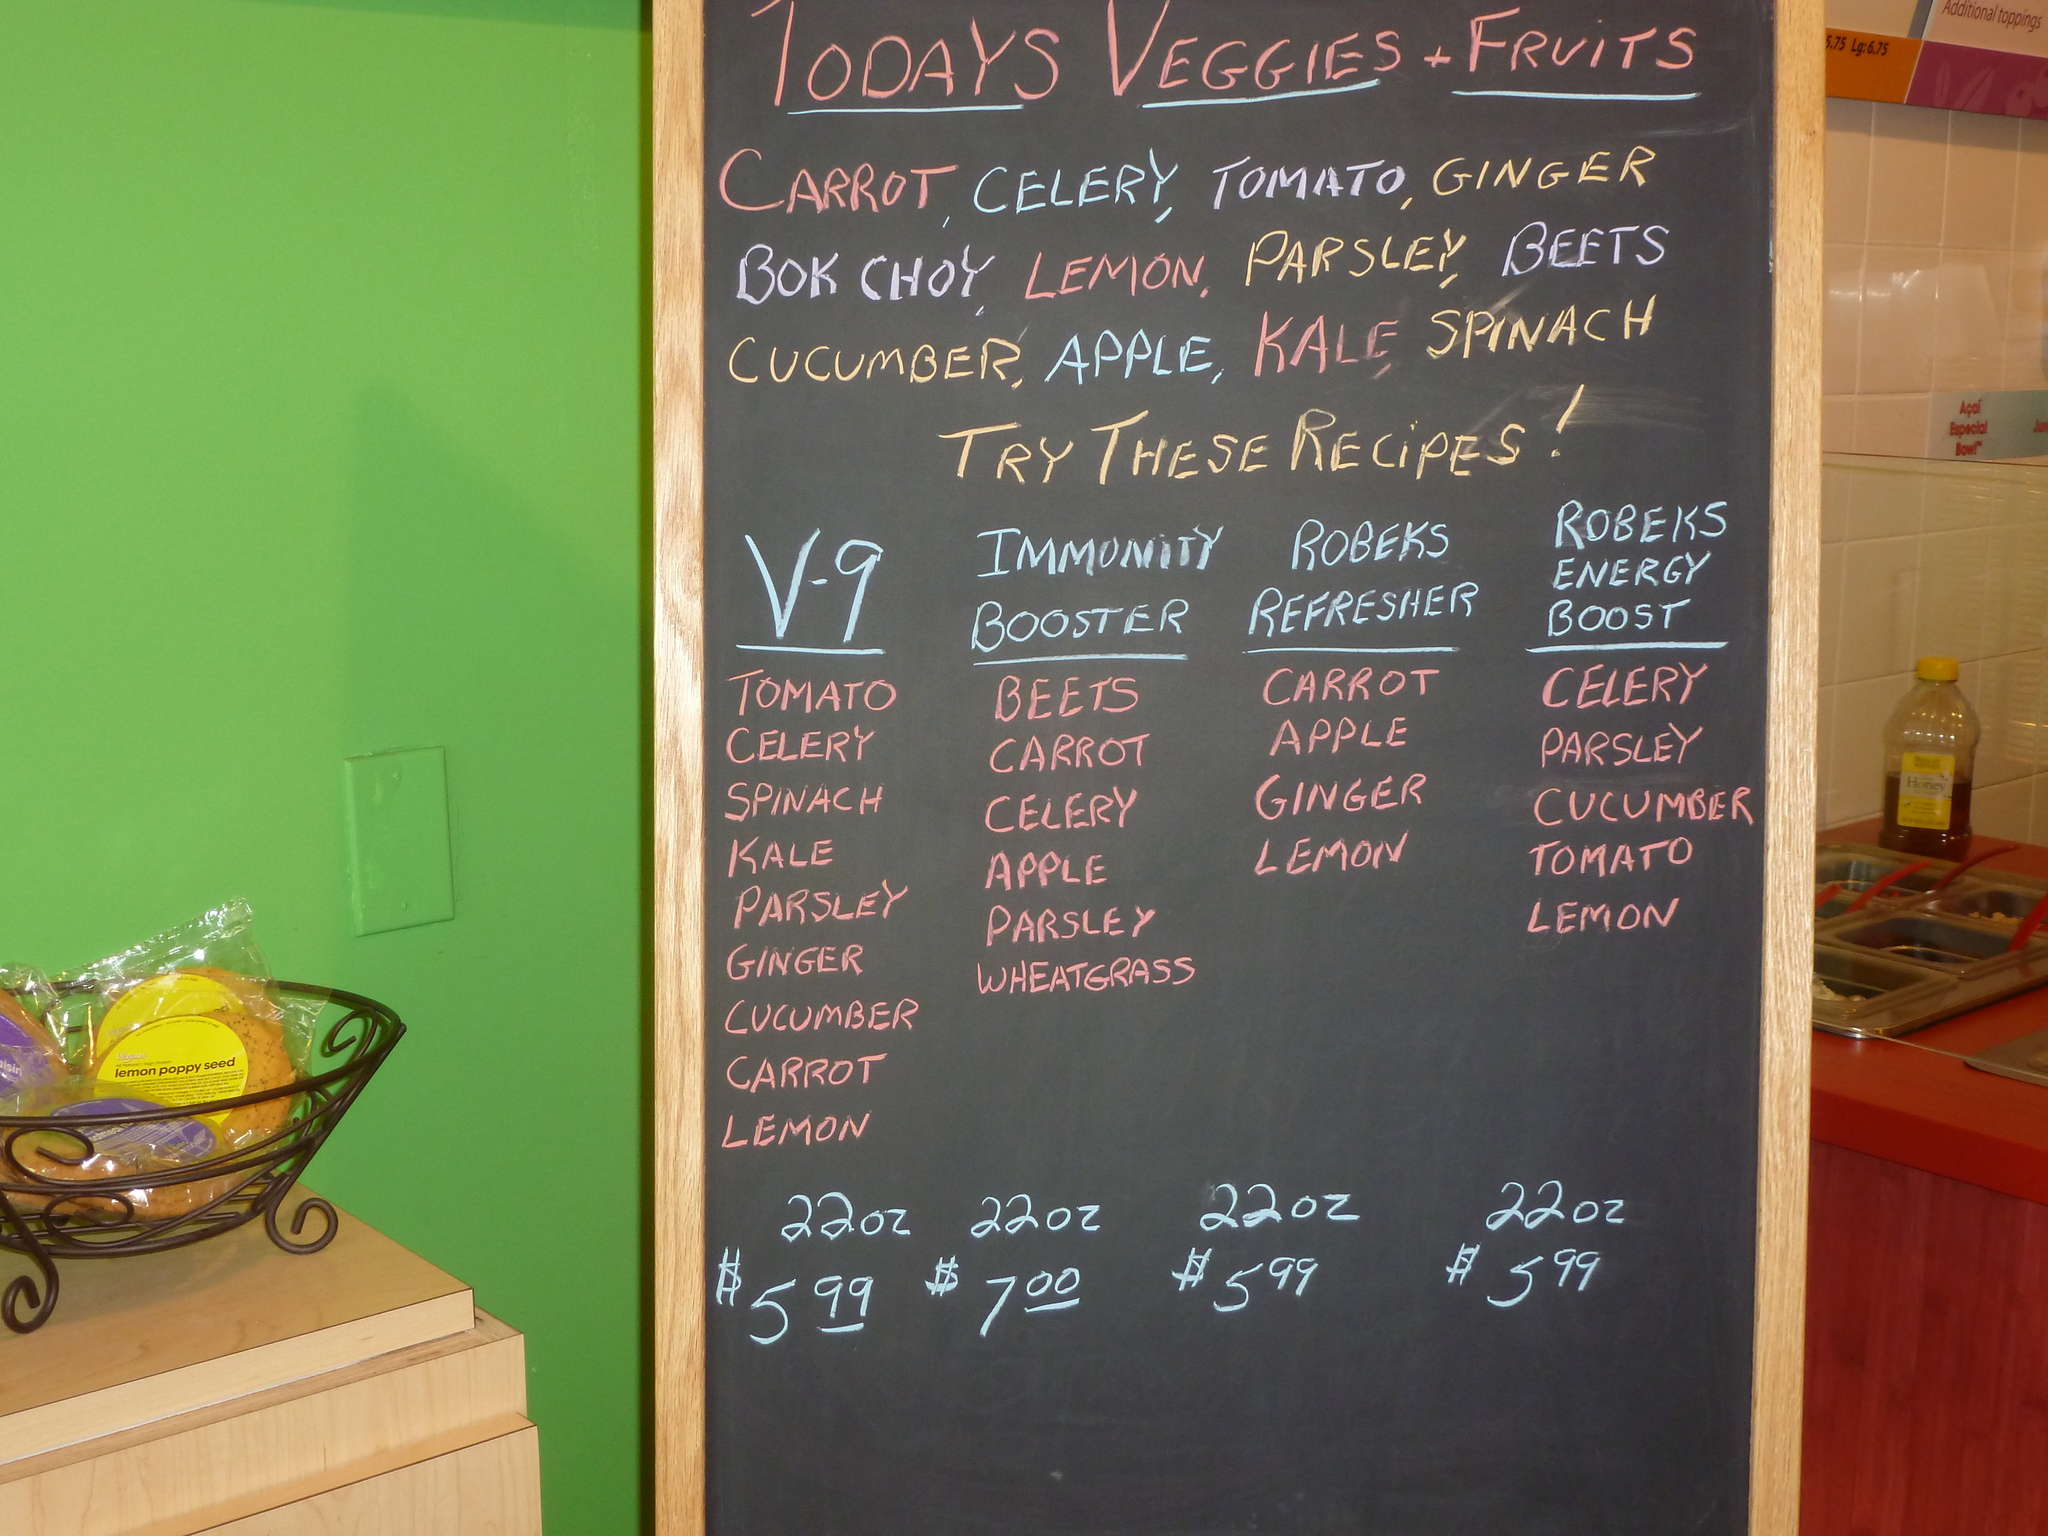 TODAYS VEGGIES + FRUITS
CARROT, CELERY, TOMATO, GINGER
BOK CHOY, LEMON, PARSLEY, BEETS
CUCUMBER, APPLE, KALE, SPINACH
TRY THESE RECIPES!
V-9
TOMATO
CELERY
SPINACH
KALE
PARSLEY
GINGER
CUCUMBER
CARROT
LEMON
22oz
$5.99
IMMUNITY
BOOSTER
BEETS
CARROT
CELERY
APPLE
PARSLEY
WHEATGRASS
22oz
$7.00
ROBEKS
REFRESHER
CARROT
APPLE
GINGER
LEMON
22oz
$5.99
ROBEKS
ENERGY
BOOST
CELERY
PARSLEY
CUCUMBER
TOMATO
LEMON
22oz
$5.99
Additional toppings
5.75 Lg: 6.75
Açaí
Especial
Bowl™
Honey
lemon poppy seed